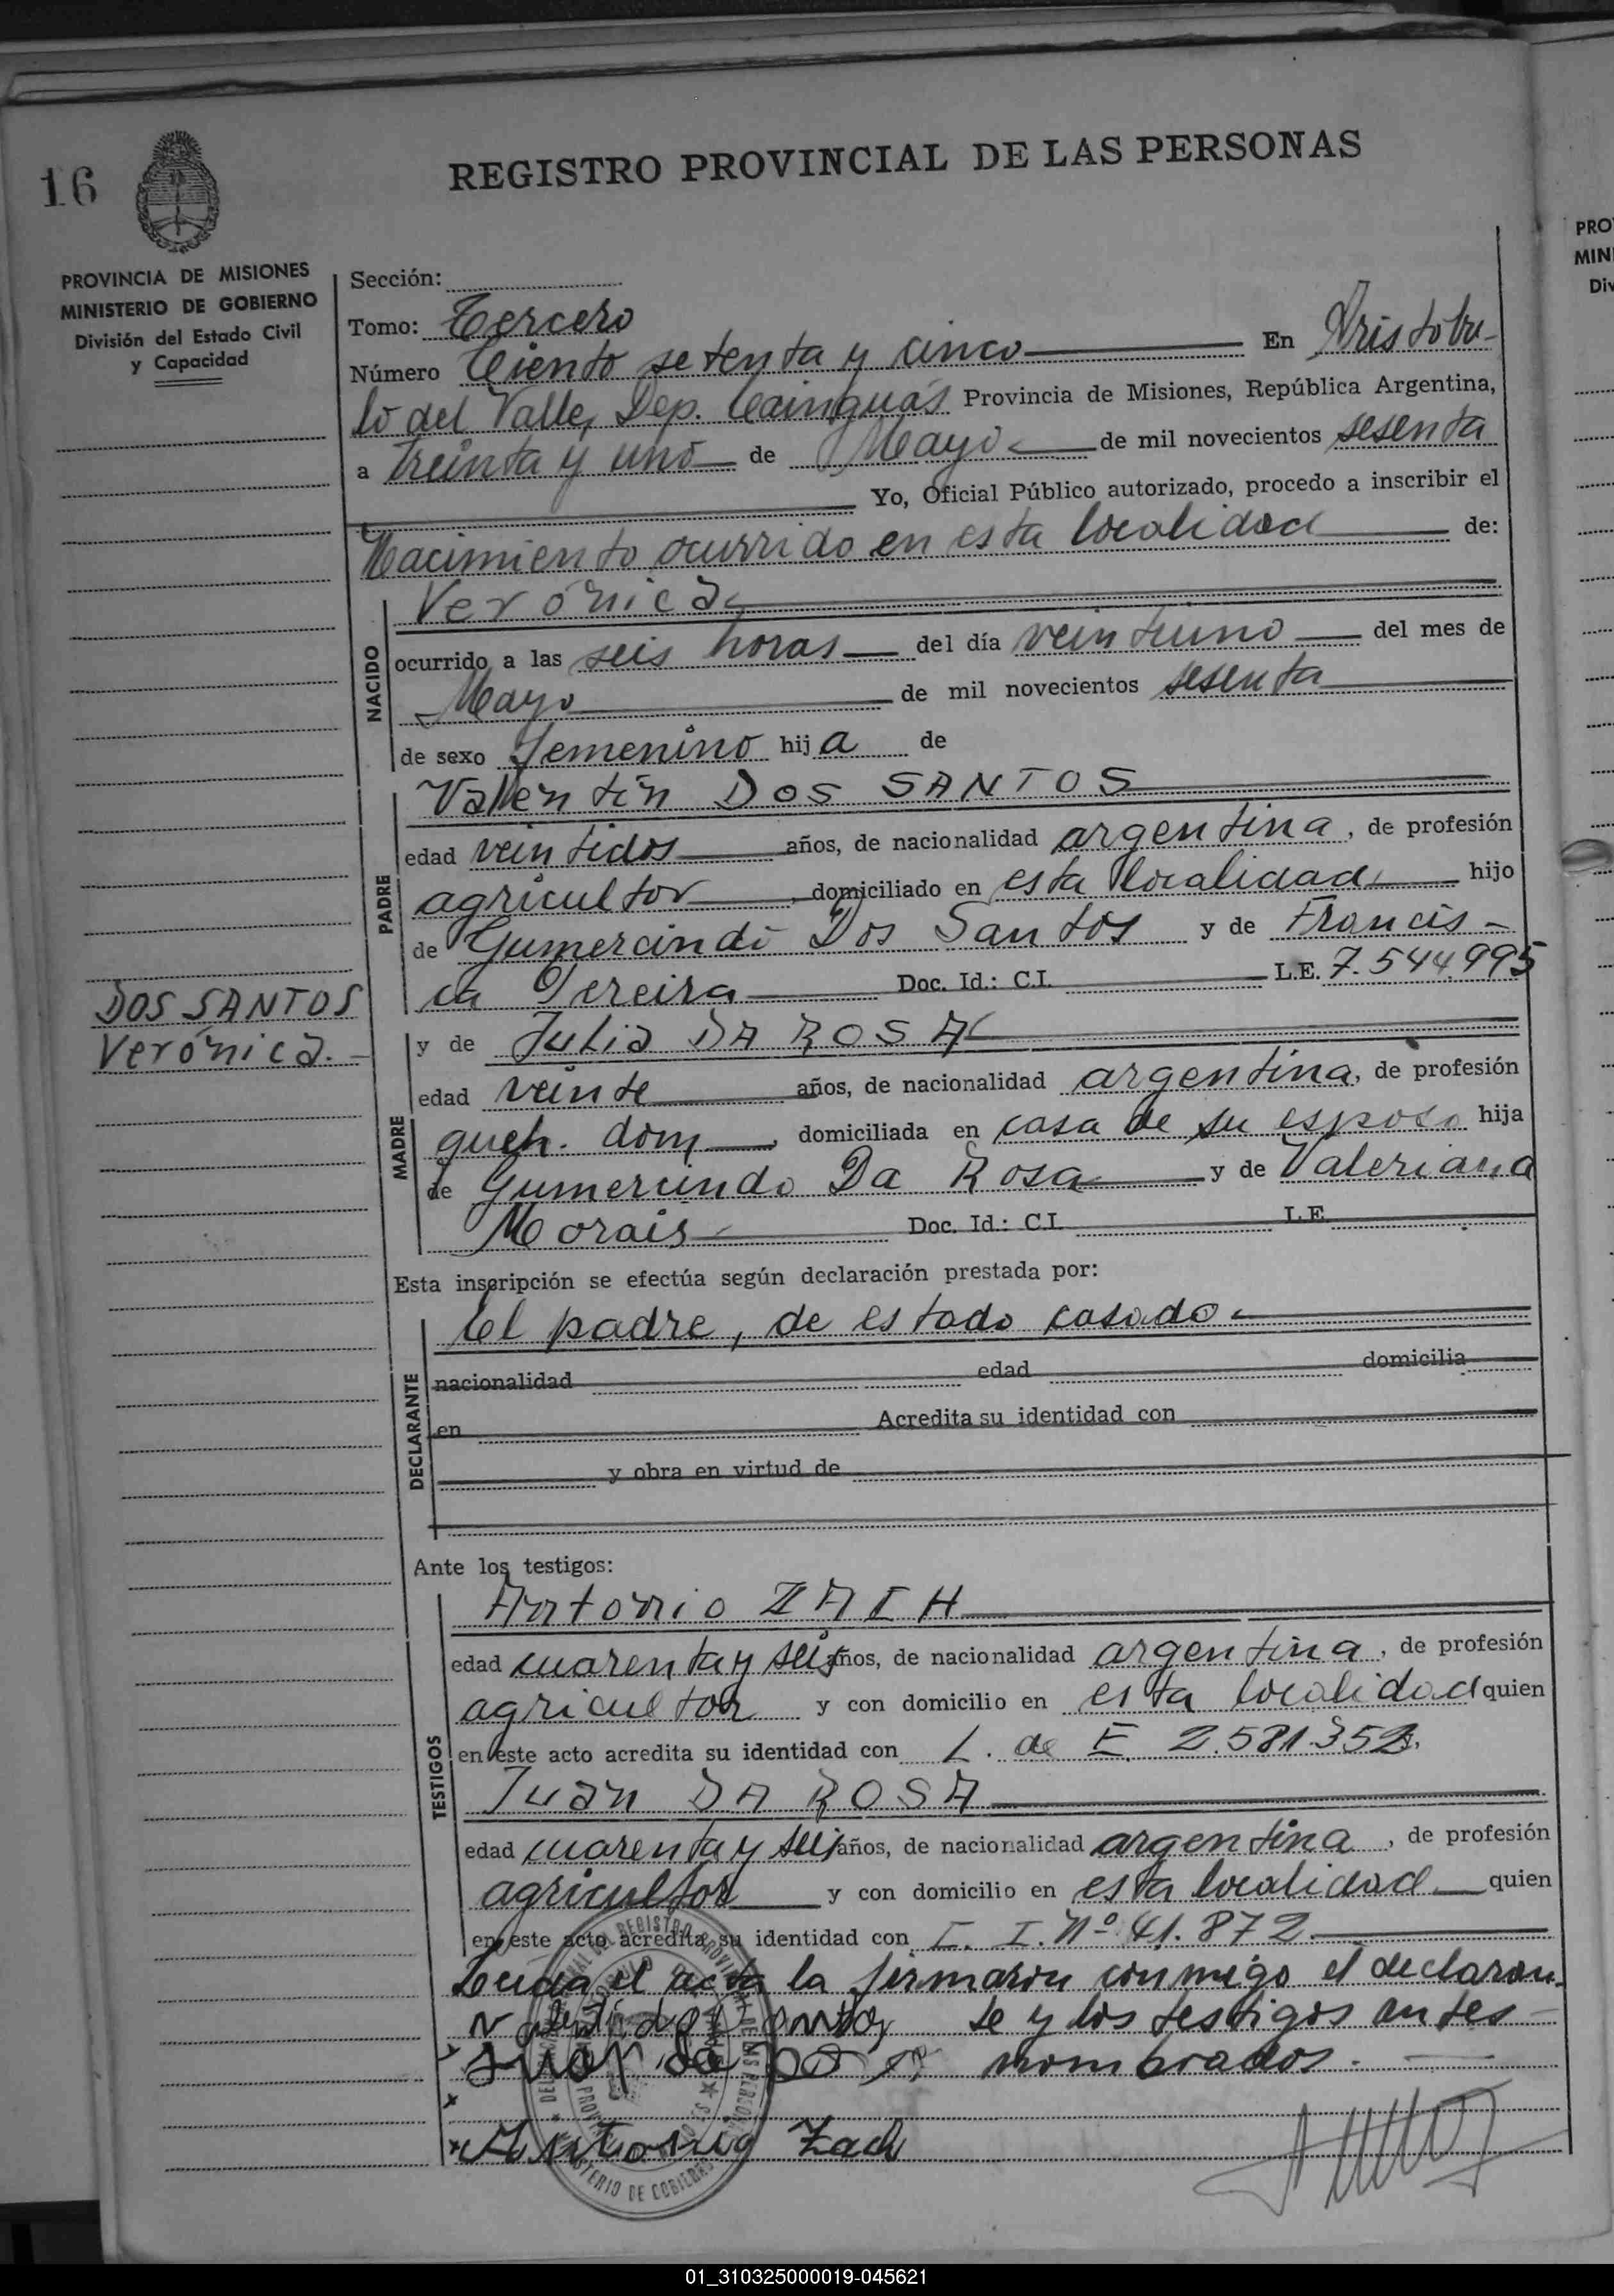 16
REGISTRO PROVINCIAL DE LAS PERSONAS
PROVINCIA DE MISIONES
MINISTERIO DE GOBIERNO
División del Estado Civil
y Capacidad
Sección:
Tomo: Tercero
Número Ciento setenta y cinco En Aristobu-
lo del Valle, Dep. Cainguás Provincia de Misiones, República Argentina,
a treinta y uno de Mayo de mil novecientos sesenta
Yo, Oficial Público autorizado, procedo a inscribir el
Nacimiento ocurrido en esta localidad de:
NACIDO
Verónica
ocurrido a las seis horas del día veintiuno del mes de
Mayo de mil novecientos sesenta
de sexo femenino hija de
PADRE
Valentín DOS SANTOS
edad veintidos años, de nacionalidad argentina, de profesión
agricultor, domiciliado en esta localidad hijo
de Gumercindo Dos Santos y de Francis-
ca Pereira Doc. Id.: C.I. L.E. 7.544.995
DOS SANTOS
Verónica.-
MADRE
y de Julia DA ROSA
edad veinte años, de nacionalidad argentina, de profesión
queh. dom, domiciliada en casa de su esposo hija
de Gumercindo Da Rosa y de Valeriana
Morais Doc. Id.: C.I. L.E.
Esta inscripción se efectúa según declaración prestada por:
DECLARANTE
El padre, de estado casado
nacionalidad edad domicilia
en Acredita su identidad con
y obra en virtud de
Ante los testigos:
TESTIGOS
Antonio ZACH
edad cuarenta y seis años, de nacionalidad argentina, de profesión
agricultor y con domicilio en esta localidad quien
en este acto acredita su identidad con L. de E. 2.581.352.
Juan DA ROSA
edad cuarenta y seis años, de nacionalidad argentina, de profesión
agricultor y con domicilio en esta localidad quien
en este acto acredita su identidad con C. I. Nº 41.872
Leida el acta la firmaron conmigo el declaran-
te y los testigos antes
nombrados.
Antonio Zach
PRO
MINI
Div
01_310325000019-045621